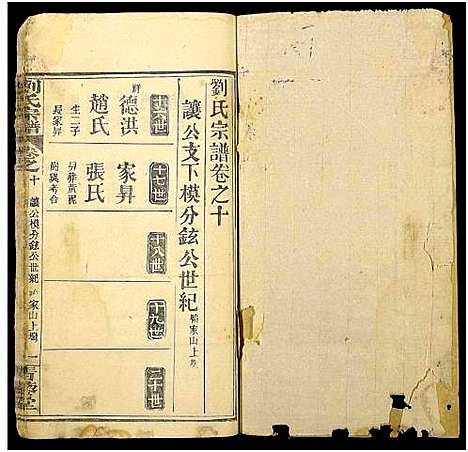 劉氏宗譜卷之十
讓公支下模分鉉公世紀
家山上
十六世
德洪
趙氏
生二子
長家昇
十七世
家昇
張氏
十八世
十九世
二十世
劉氏宗譜
卷之十
讓公模分鉉公世紀
家山上
一